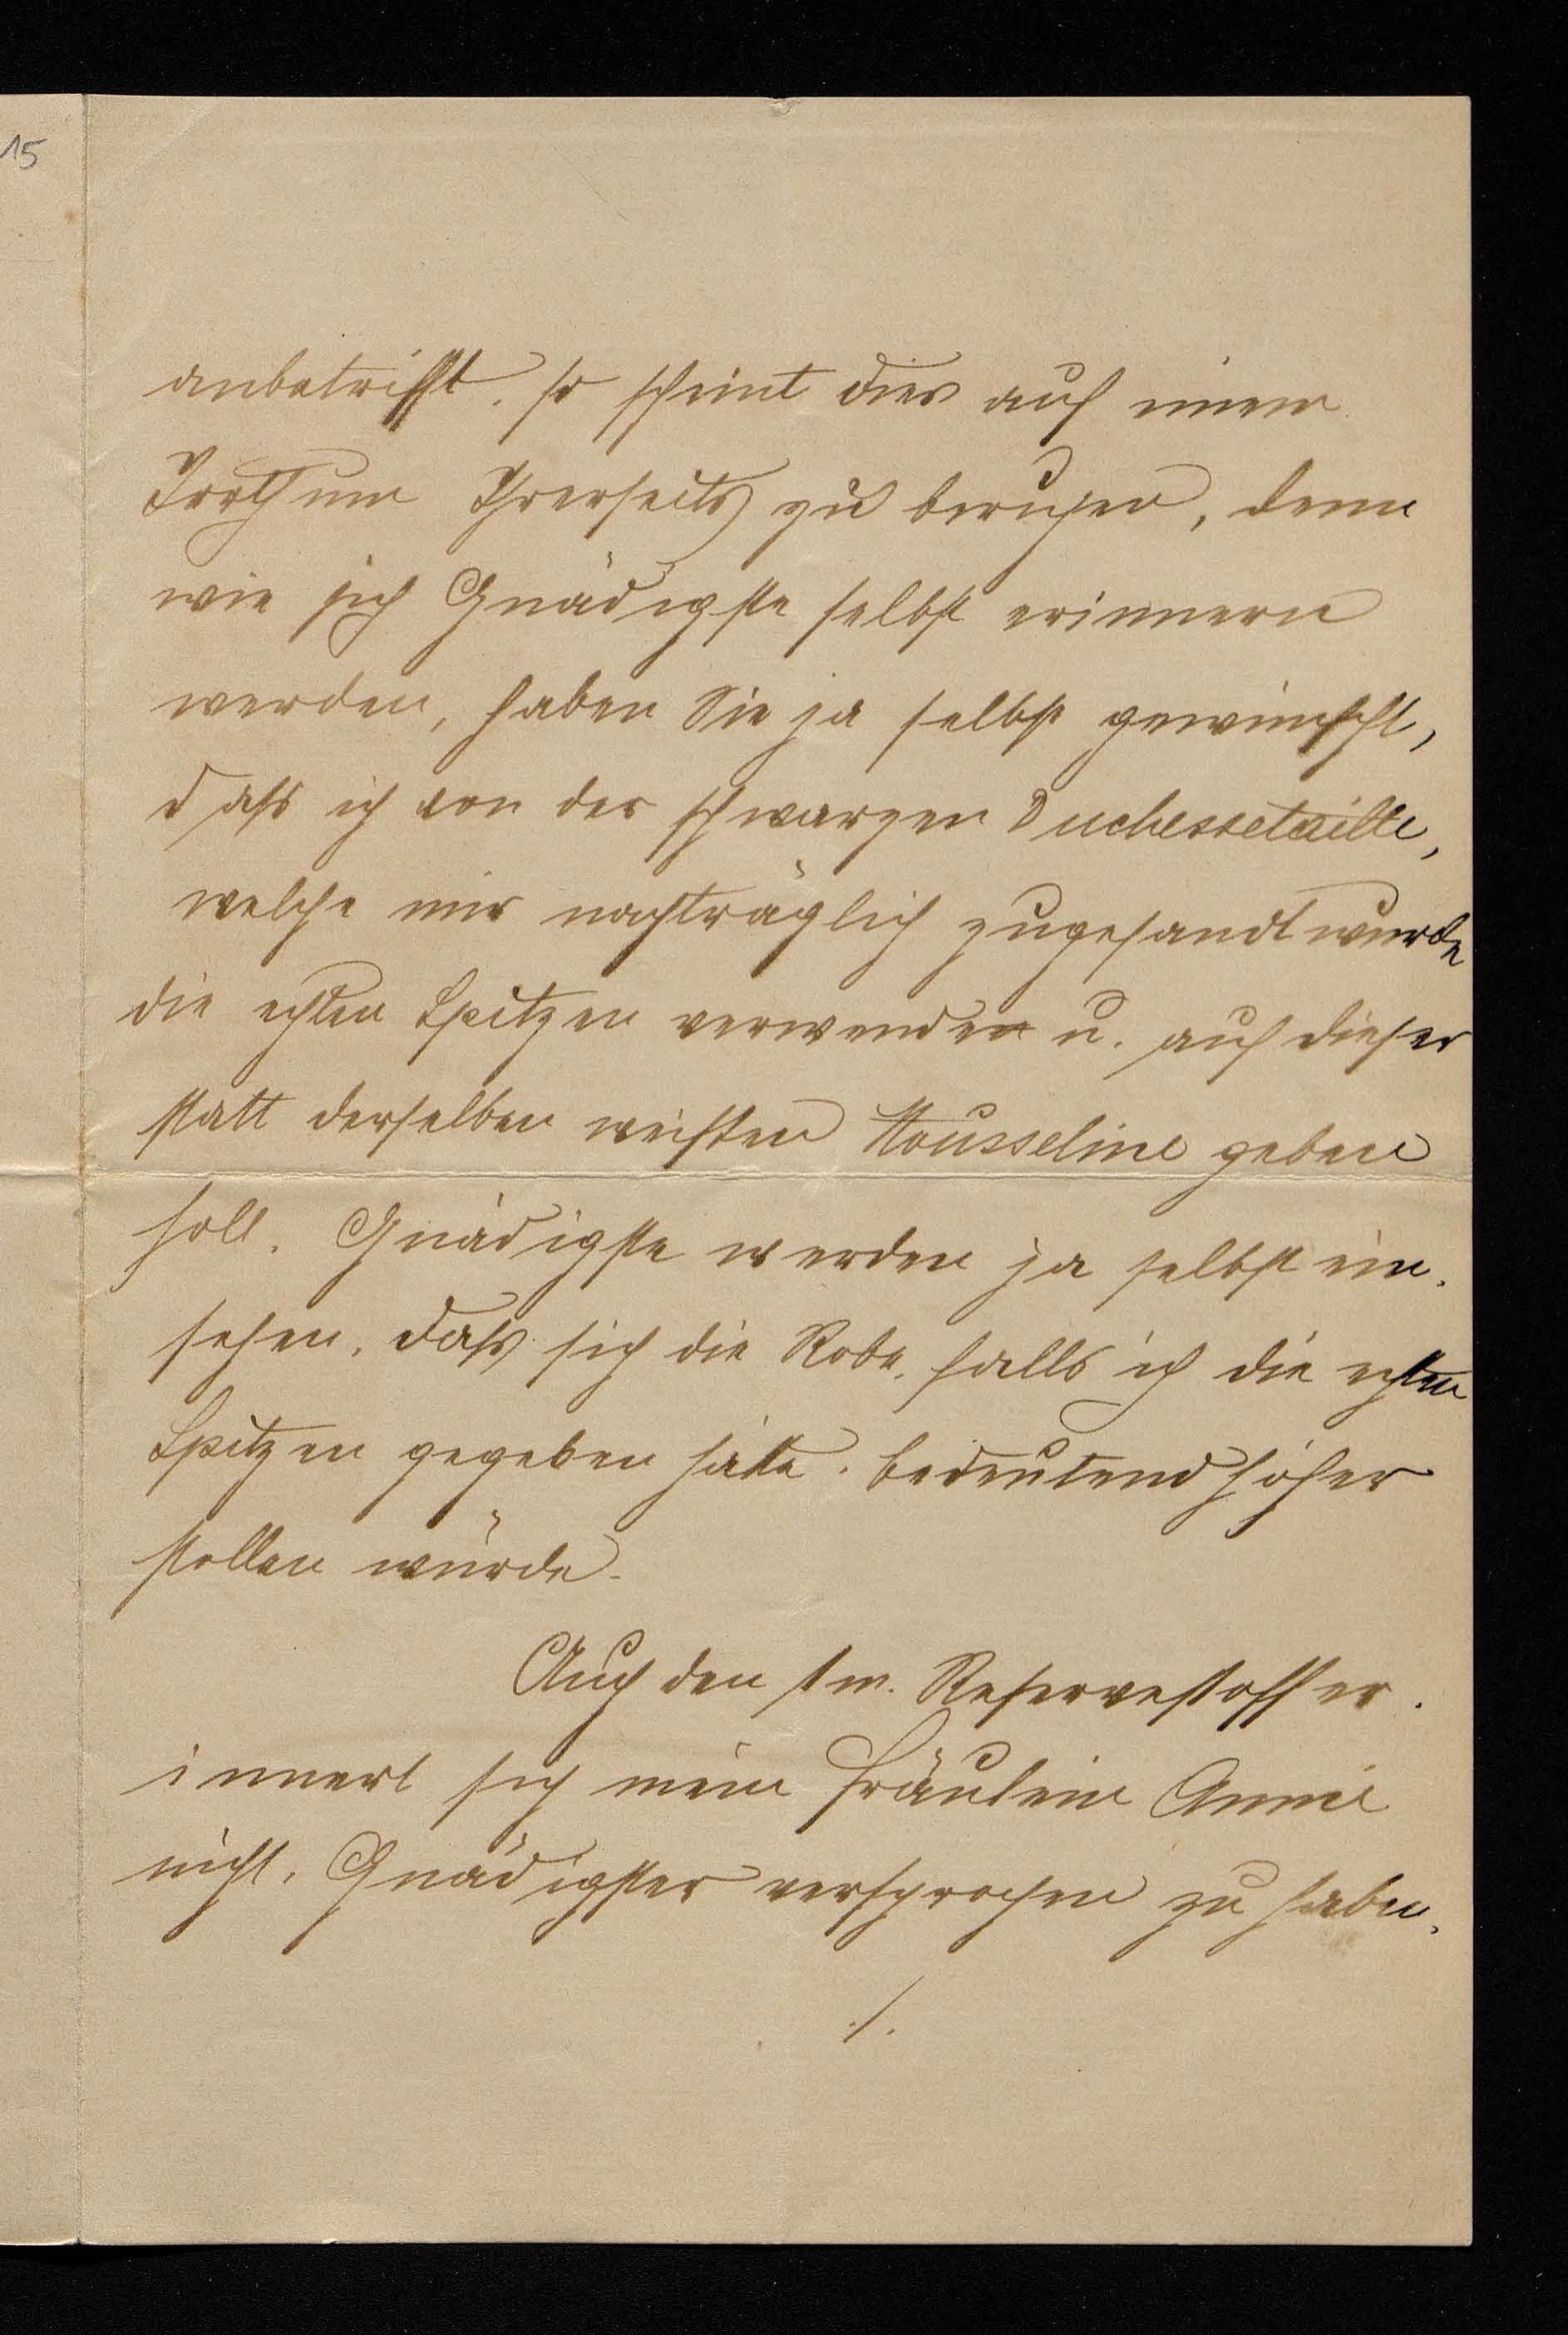 15
anbetrifft, so scheint dies auf einem
Irrthum Ihrerseits zu beruhen, denn
wie sich Gnädigste selbst erinnern
werden, haben Sie ja selbst gewünscht,
daß ich von der schwarzen Duchessetaille,
welche mir nachträglich zugesandt wurde
die echten Spitzen verwenden u. auf dieser
statt derselben weißen Mousseline geben
soll. Gnädigste werden ja selbst ein-
sehen, daß sich die Robe, falls ich die echten
Spitzen gegeben hätte, bedeutend höher
stellen würde.
Auch den 1 m. Reservestoff er-
innert sich mein Fräulein Annie
nicht, Gnädigster versprochen zu haben.
./.